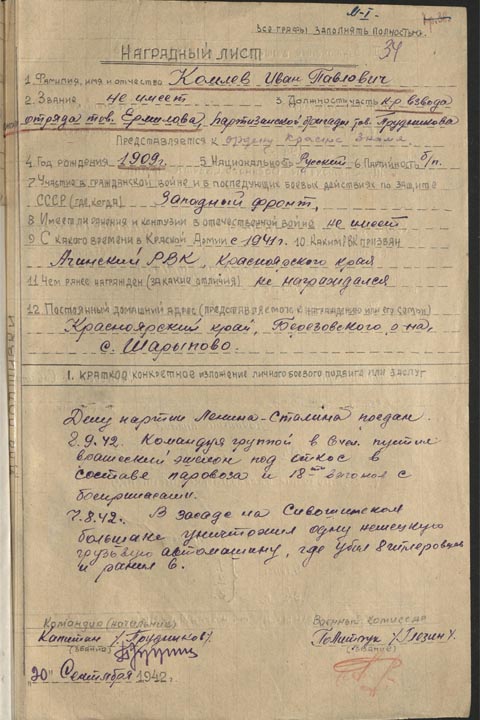 М-I-
Все графы заполнять полностью.
34
Наградный лист
1. Фамилия, имя и отчество Комлев Иван Павлович
2. Звание не имеет 3. Должность, часть к-р взвода
отряда тов. Ермилова, партизанской бригады тов. Прудникова
Представляется к ордену Красное Знамя
4. Год рождения 1909г. 5 Национальность Русский 6 Партийность б/п.
7 Участие в гражданской войне и в последующих боевых действиях по защите
СССР (где, когда) Западный фронт,
8 Имеет ли ранения и контузии в отечественной войне не имеет
9 С какого времени в Красной Армии с 1941г. 10 Каким РВК призван
Ачинский РВК, Красноярского края
11 Чем ранее награжден (за какие отличия) не награждался
12. Постоянный домашний адрес (представляемого к награждению или его семьи)
Красноярский край, Березовского р-на,
с. Шарыпово
1. Краткое конкретное изложение личного боевого подвига или заслуг
Делу партии Ленина-Сталина предан.
2.9.42. Командуя группой в 6 чел. пустил
вражеский эшелон под откос в
составе паровоза и 18-ти вагонов с
боеприпасами.
7.8.42г. В засаде на Сивошинском
большаке уничтожил одну немецкую
грузовую автомашину, где убил 8 гитлеровцев
и ранил 6.
Командир (начальник)
Военный комиссар
Капитан /Прудников/.
Политрук /Глезин/.
(звание)
(звание)
"20" Сентября 1942г.